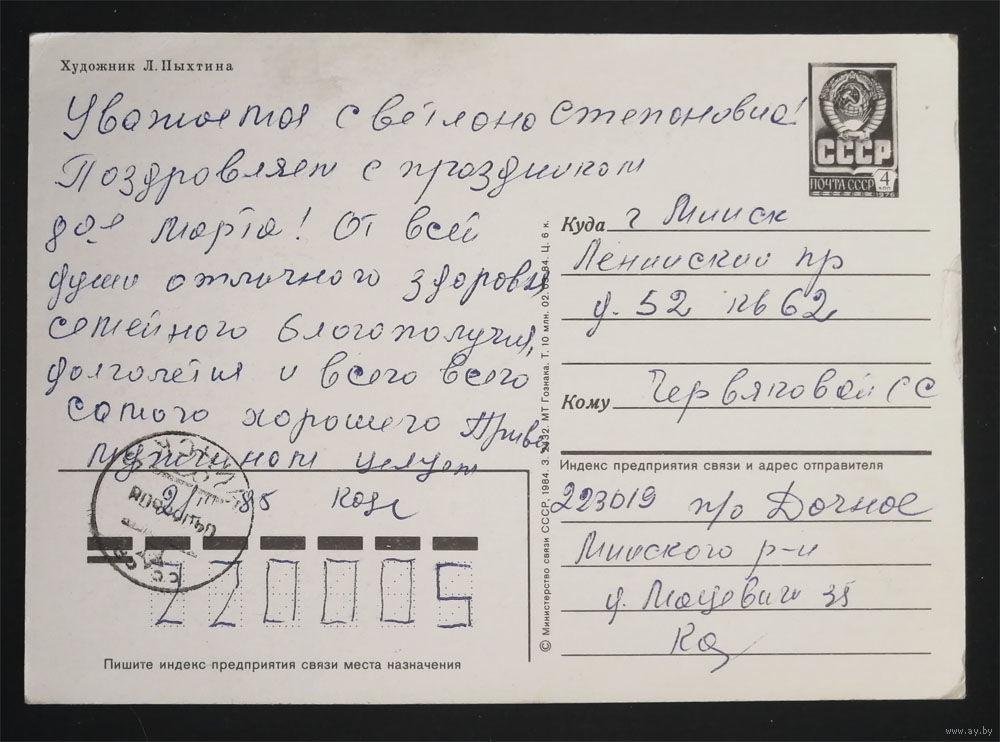 Художник Л. Пыхтина
Уважаемая Светлана Степановна!
Поздравляем с праздником
8ое марта! От всей
души отличного здоровья
семейного благополучия,
долголетия и всего всего
самого хорошего Приве
мужчинам целуем
2/III 85
220005
Пишите индекс предприятия связи места назначения
© Министерство связи СССР, 1984. З. 2132. МТ Гознака. Т. 10 млн. 02.03.84. Ц. 6 к.
СССР
ПОЧТА СССР 4 коп
1976
Куда г Минск
Ленинский пр
д. 52 кв 62
Кому Червяковой СС
Индекс предприятия связи и адрес отправителя
223019 п/о Дачное
Минского р-н
Коз
www.ay.by